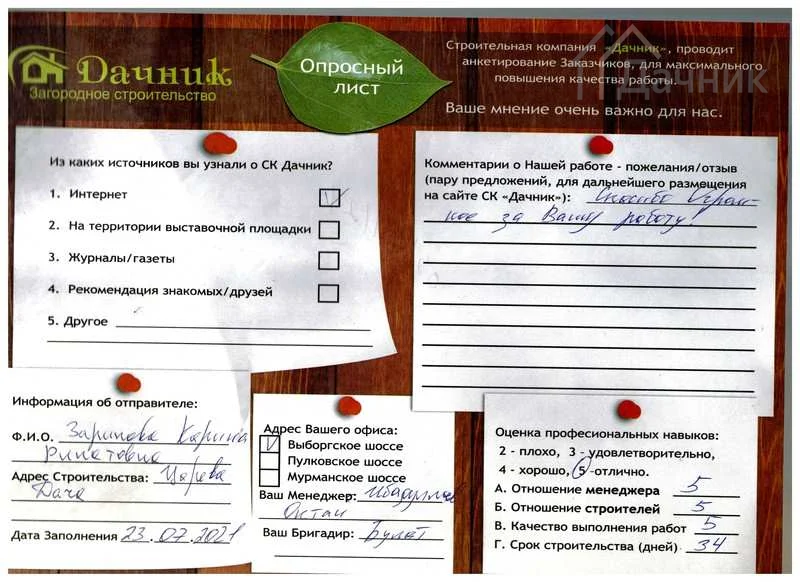 Дачник
Загородное строительство
Опросный
лист
Строительная компания «Дачник», проводит
анкетирование Заказчиков, для максимального
повышения качества работы.
Ваше мнение очень важно для нас.
Дачник
Из каких источников вы узнали о СК Дачник?
1. Интернет
2. На территории выставочной площадки
3. Журналы/газеты
4. Рекомендация знакомых/друзей
5. Другое
Комментарии о Нашей работе - пожелания/отзыв
(пару предложений, для дальнейшего размещения
на сайте СК «Дачник»): Спасибо Огром-
ное за Вашу работу!
Информация об отправителе:
Ф.И.О. Зарипова Карина
Ринатовна
Адрес Строительства: Царева
Дача
Дата Заполнения 23.07.2021
Адрес Вашего офиса:
V Выборгское шоссе
Пулковское шоссе
Мурманское шоссе
Ваш Менеджер:
Октай
Ваш Бригадир: Булат
Оценка професиональных навыков:
2 - плохо, 3 - удовлетворительно,
4 - хорошо, 5 -отлично.
А. Отношение менеджера 5
Б. Отношение строителей 5
В. Качество выполнения работ 5
Г. Срок строительства (дней) 34